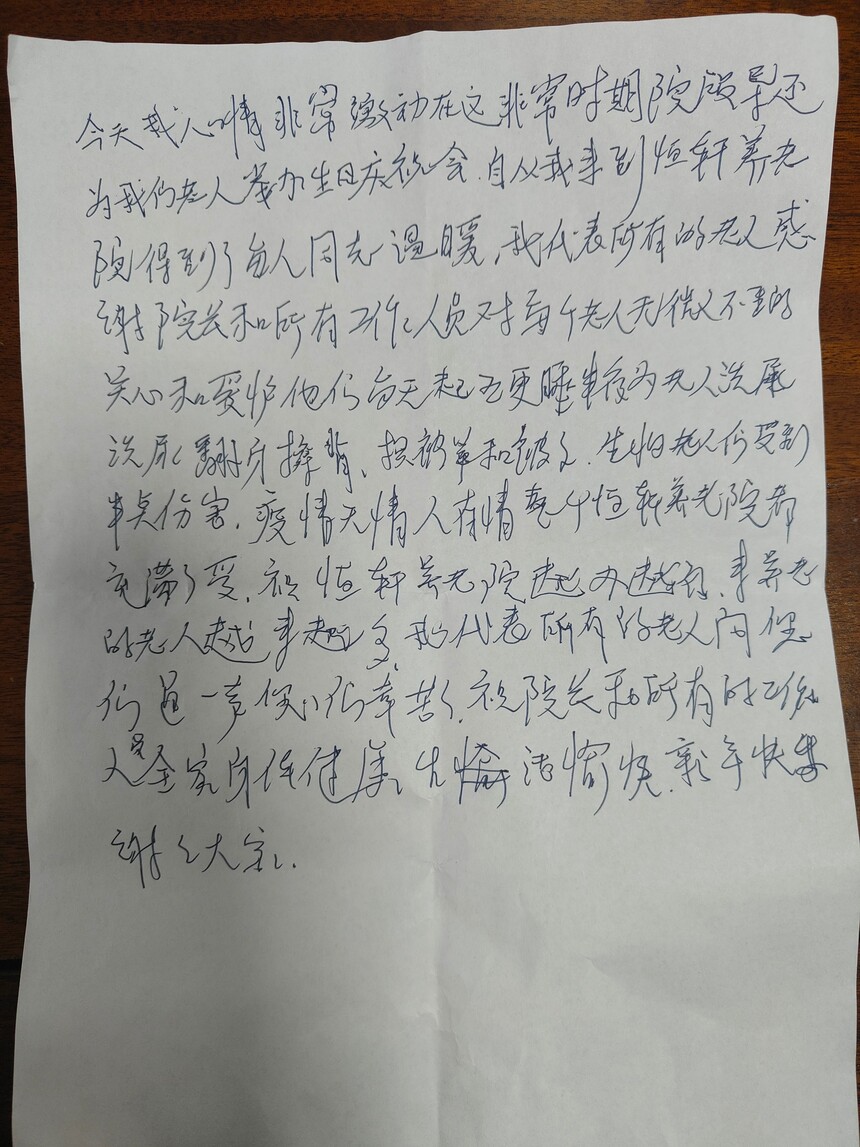 今天我心情非常激动在这非常时期院领导还
为我们老人举办生日庆祝会.自从我来到恒轩养老
院得到了每人同志温暖,我代表所有的老人感
谢院长和所有工作人员对每个老人无微不至的
关心和爱护他们每天起五更睡半夜为老人洗屎
洗尿翻身擦背、换被单和被子.生怕老人们受到
半点伤害.疫情无情人有情整个恒轩养老院都
充满了爱.祝恒轩养老院越办越好.来养老
的老人越来越多.我代表所有的老人向您
们道一声您们辛苦了.祝院长和所有的工作
人员全家身体健康生活愉快.新年快乐
谢谢大家.